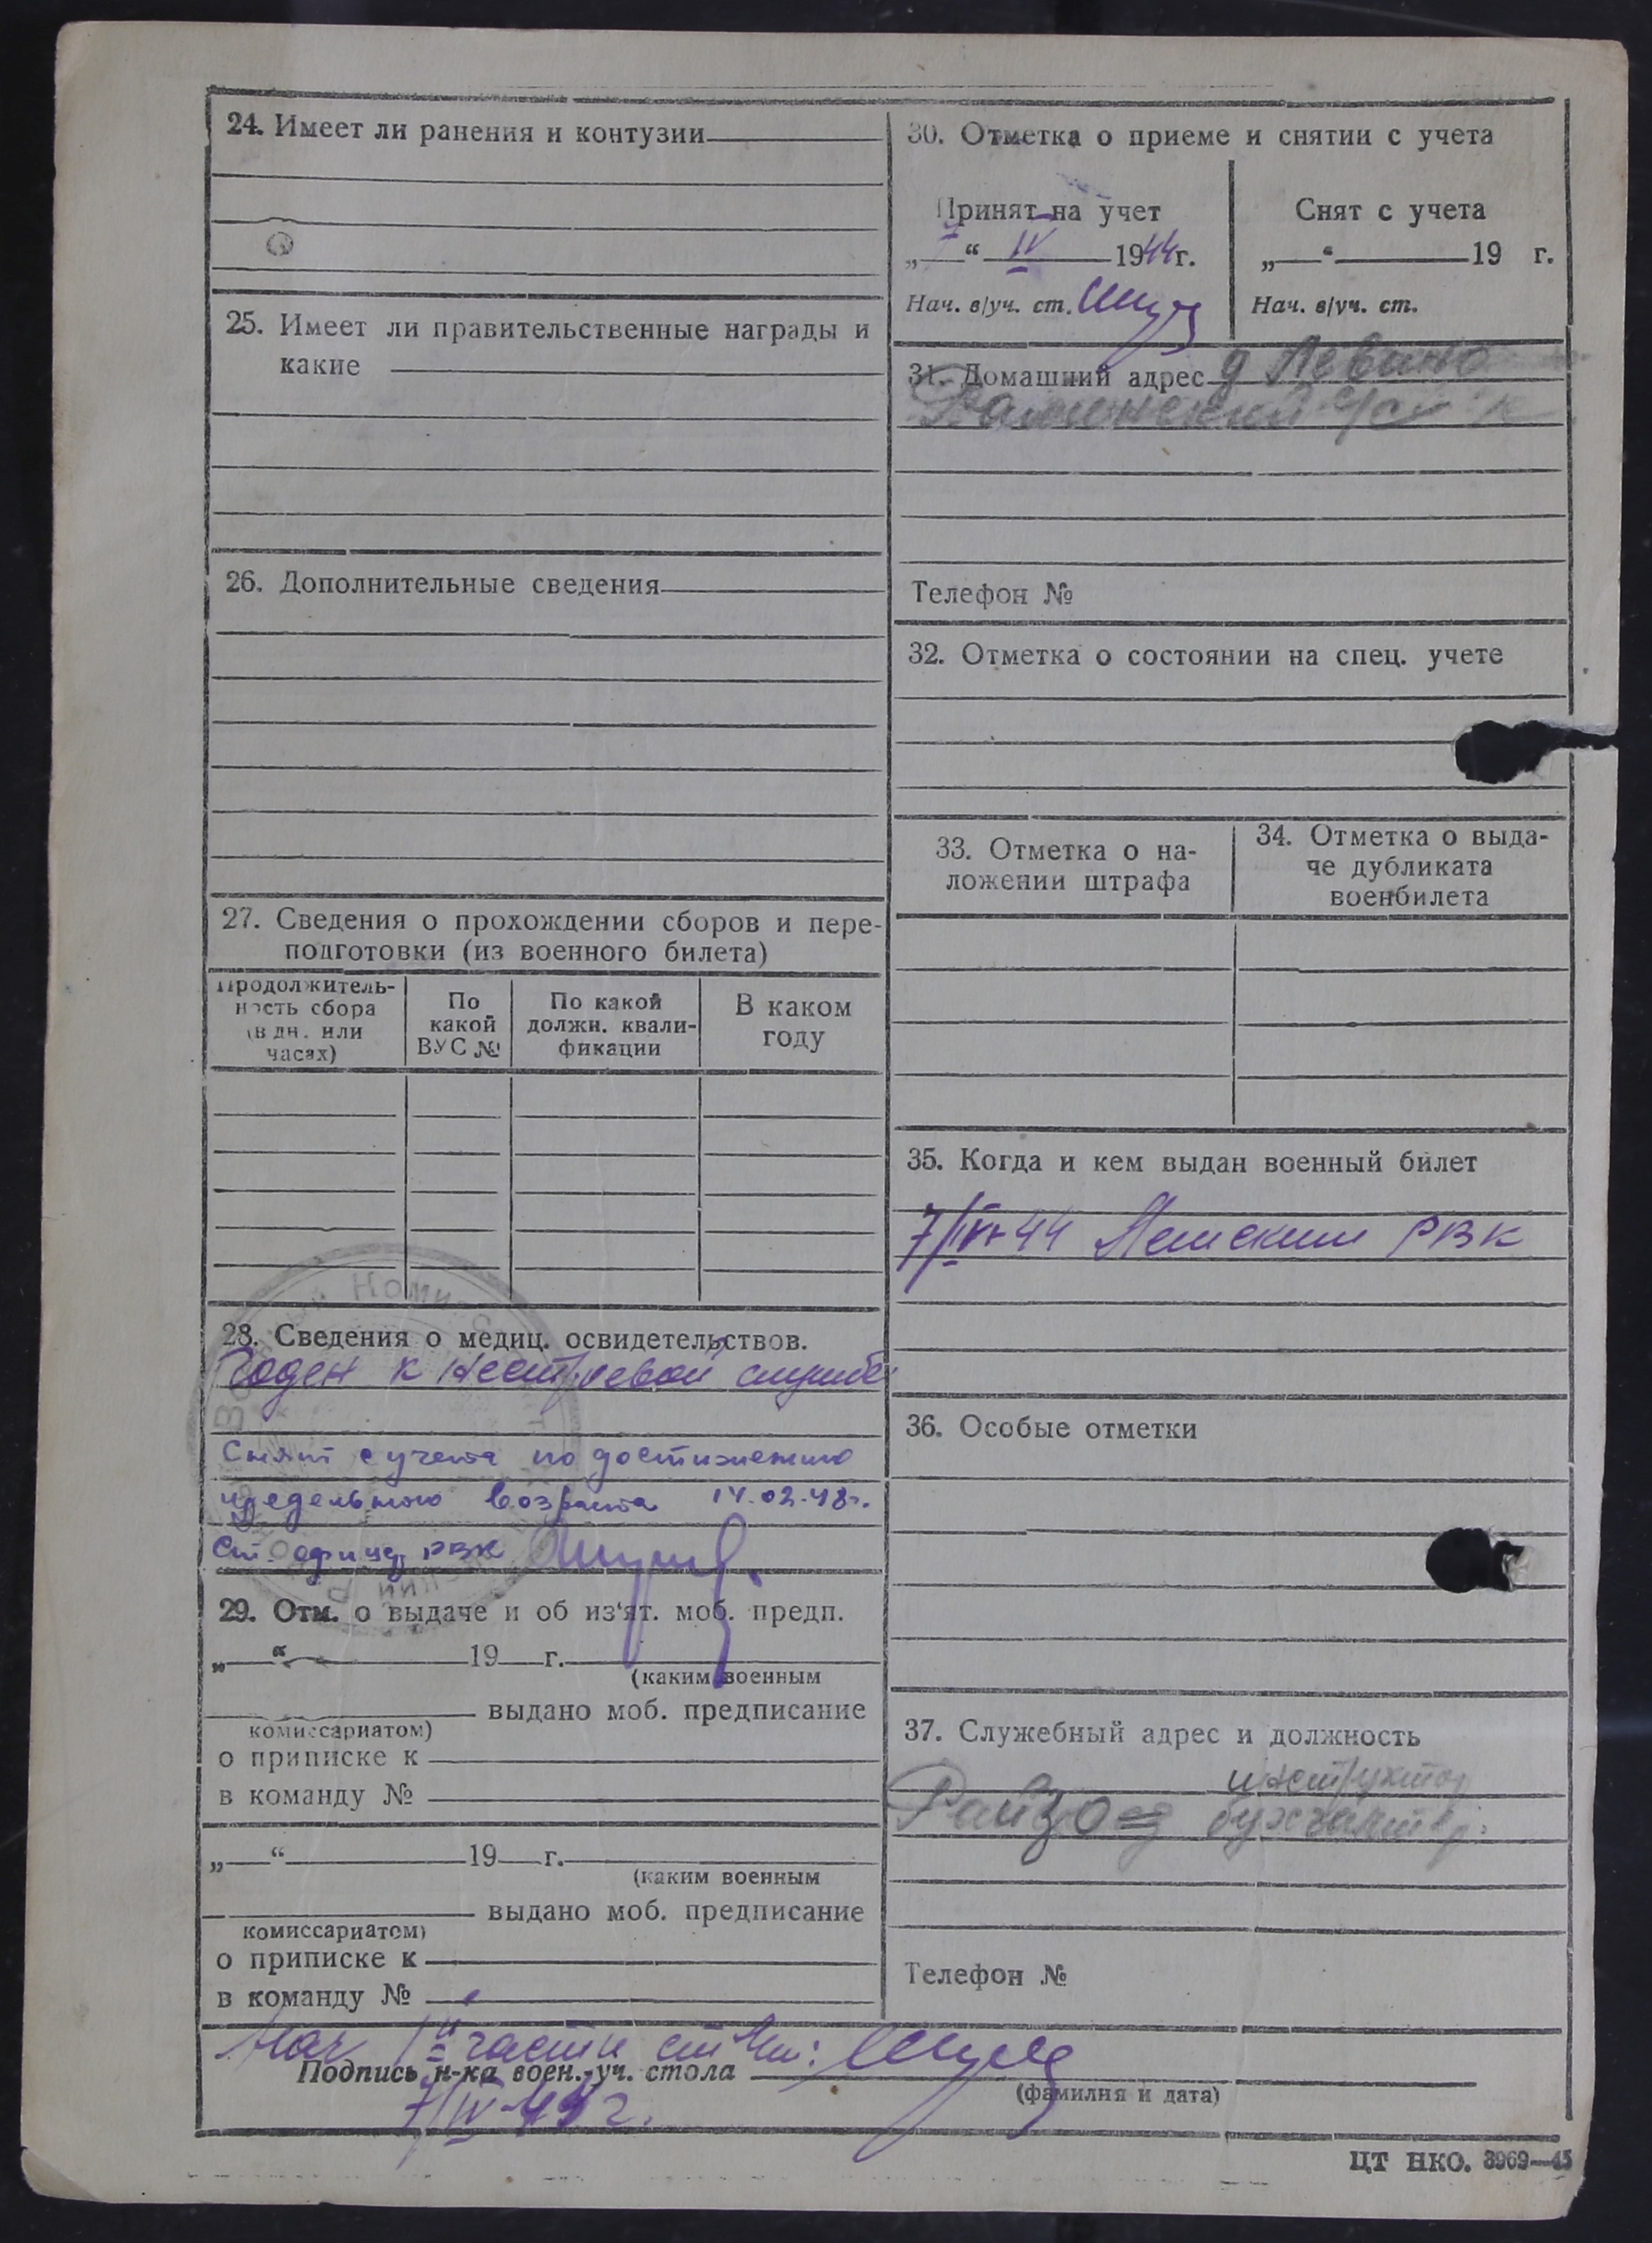 24. Имеет ли ранения и контузии
25. Имеет ли правительственные награды и
какие
26. Дополнительные сведения
27. Сведения о прохождении сборов и пере-
подготовки (из военного билета)
Продолжитель-
ность сбора
(в дн. или
часах)
По
какой
ВУС №
По какой
должн. квали-
фикации
В каком
году
28. Сведения о медиц. освидетельствов.
Годен к нестроевой службе
Снят с учета по достижению
предельного возраста 14.02.48г.
Ст. офицер РВК
29. Отм. о выдаче и об из'ят. моб. предп.
„ “ 19 г.
(каким военным
выдано моб. предписание
комиссариатом)
о приписке к
в команду №
„ “ 19 г.
(каким военным
выдано моб. предписание
комиссариатом)
о приписке к
в команду №
30. Отметка о приеме и снятии с учета
Принят на учет
„ “ IV 1944г.
Нач. в/уч. ст.
Снят с учета
„ “ 19 г.
Нач. в/уч. ст.
31. Домашний адрес д Левино
Телефон №
32. Отметка о состоянии на спец. учете
33. Отметка о на-
ложении штрафа
34. Отметка о выда-
че дубликата
военбилета
35. Когда и кем выдан военный билет
7/IV-44 РВК
36. Особые отметки
37. Служебный адрес и должность
инструктор
Райзо бухгалтер
Телефон №
Нач 1й части
Подпись н-ка воен.-уч. стола
(фамилия и дата)
ЦТ НКО. 3969—45